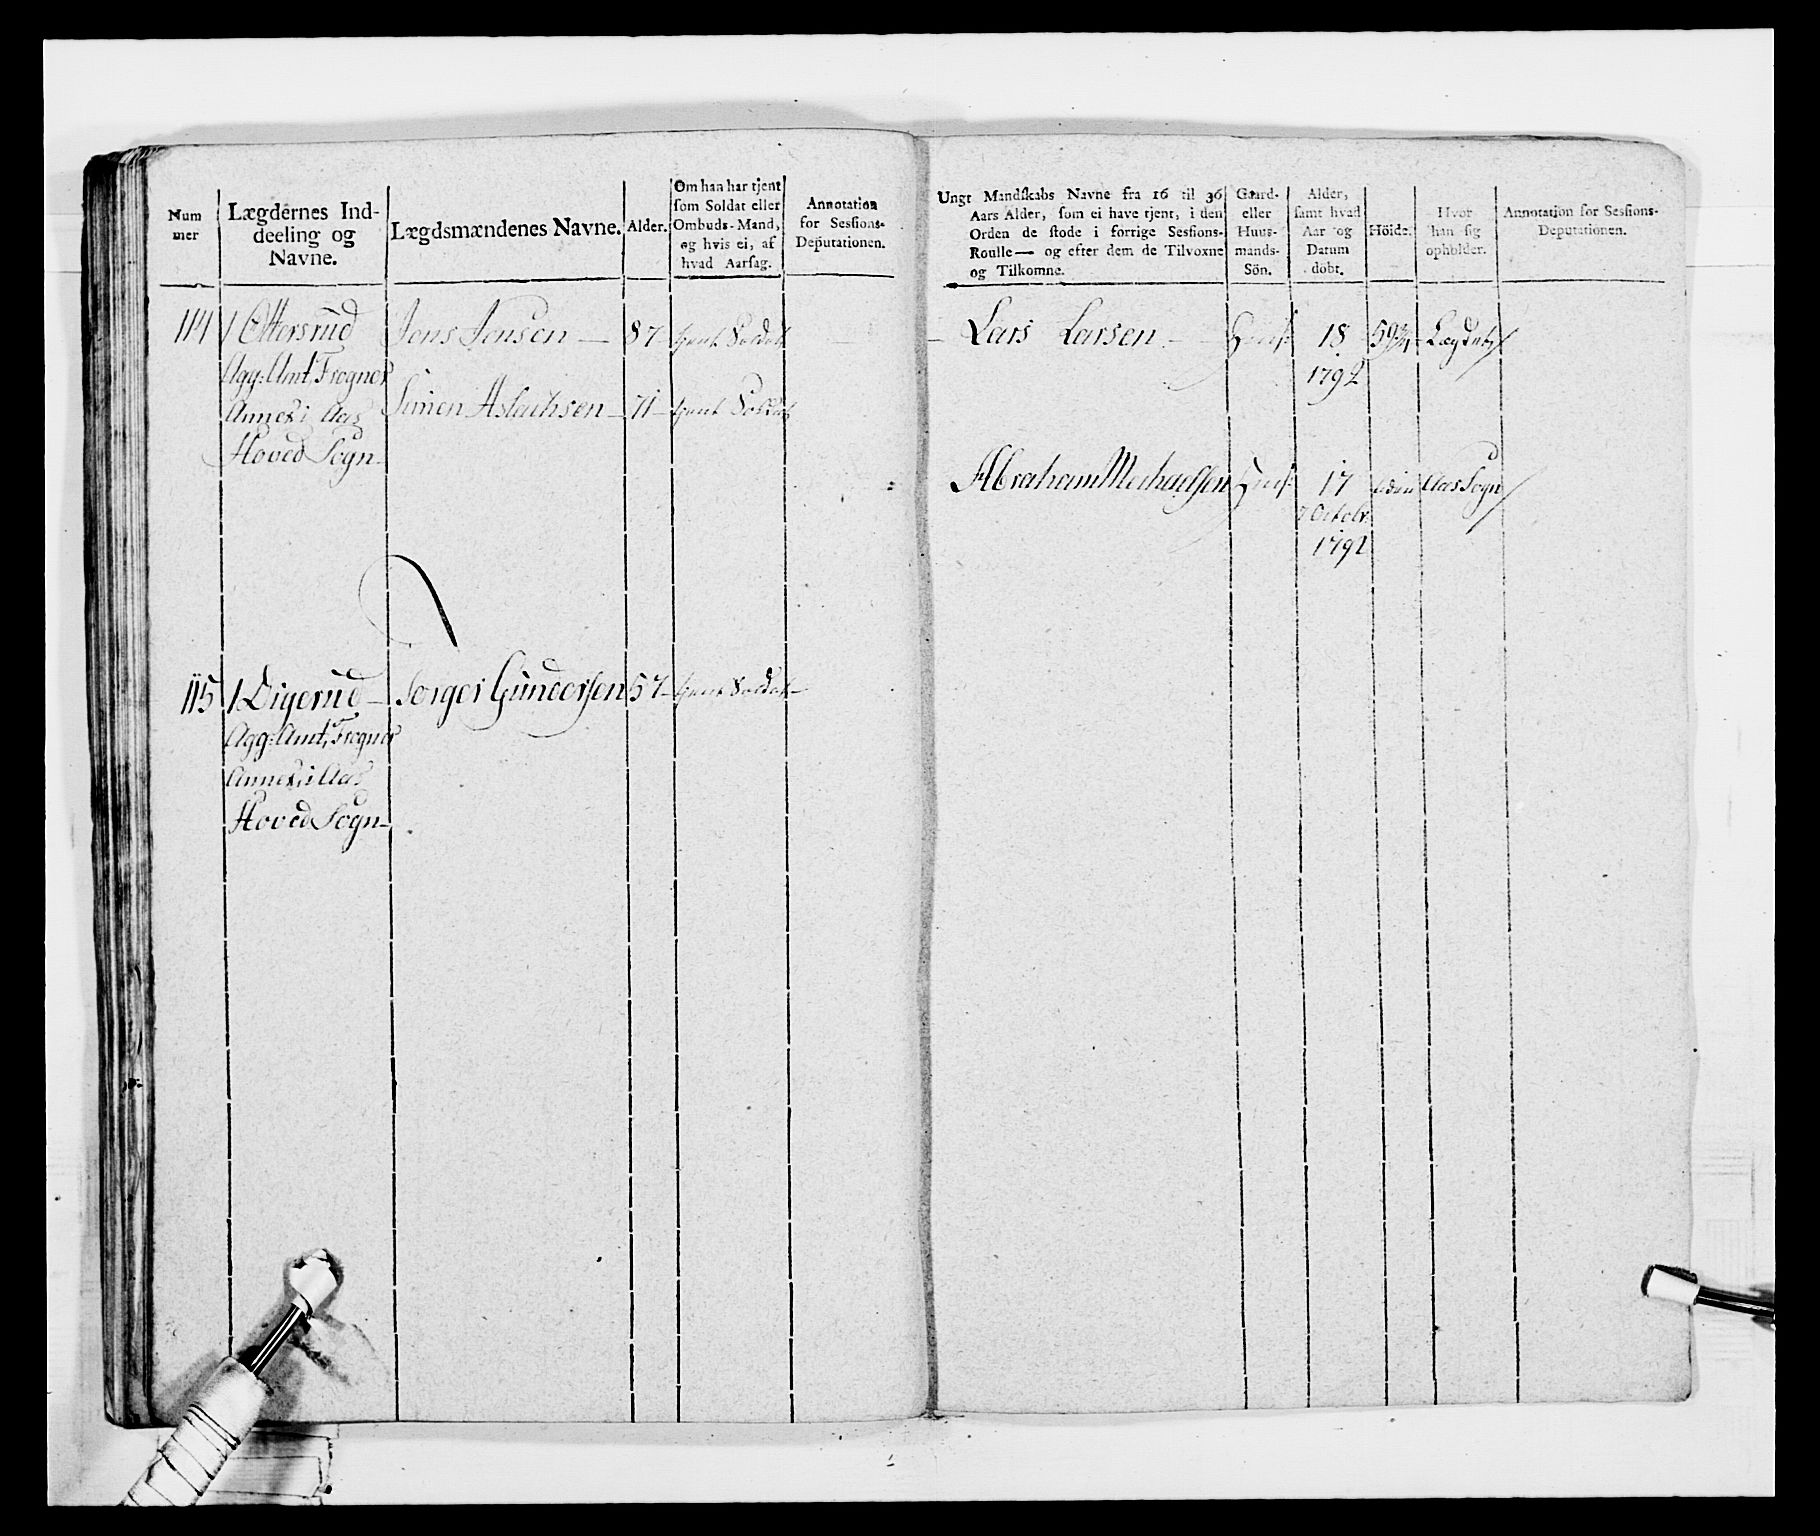 Num
mer
Lægdernes Ind-
deeling og
Navne.
Lægdsmændenes Navne.
Alder.
Om han har tjent
som Soldat eller
Ombuds-Mand,
og hvis ei, af
hvad Aarsag.
Annotation
for Sessions-
Deputationen.
114 1 Ottersrud Jens Jensen — 87 - tjent Soldat
Agg: Amt, Frogner
Simen Aslachsen - 71 - tjent Soldat
Annex i Aas
Hoved Sogn
115 1 Digerud - Torger Gundersen 57 - tjent Soldat -
Agg: Amt, Frogner
Annex, i Aas
Hoved Sogn -
Ungt Mandskabs Navne fra 16 til 36
Aars Alder, som ei have tjent, i den
Orden de stode i forrige Sessions-
Roulle — og efter dem de Tilvoxne
og Tilkomne.
Gaard-
eller
Huus-
mands-
Sön.
Alder,
samt hvad
Aar og
Datum
döbt.
Höide.
Hvor
han sig
opholder.
Annotation for Sessions-
Deputationen.
Lars Larsen - 18 Lægdet
1792
Abraham Michaelsen 17 Aas Sogn
7 Octobr
1792